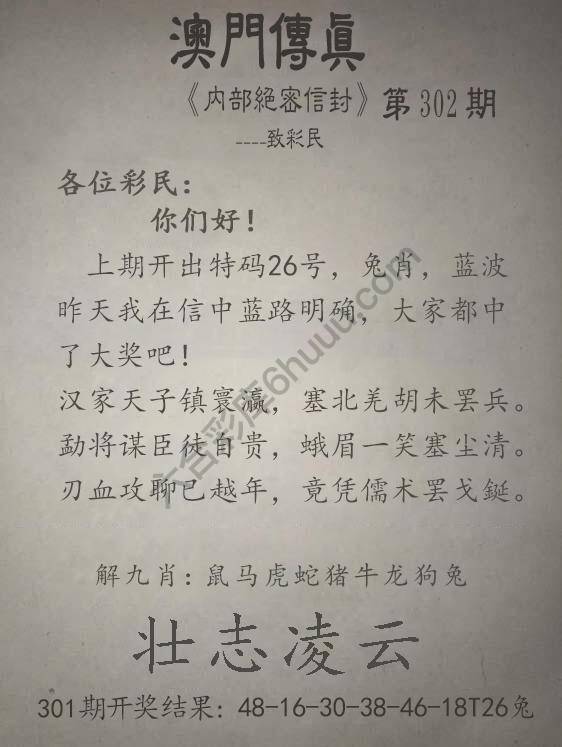 澳門傳眞
《内部絕密信封》第302期
----致彩民
各位彩民：
你们好！
上期开出特码26号，兔肖，蓝波
昨天我在信中蓝路明确，大家都中
了大奖吧！
汉家天子镇寰瀛，塞北羌胡未罢兵。
勐将谋臣徒自贵，蛾眉一笑塞尘清。
刃血攻聊已越年，竟凭儒术罢戈鋋。
解九肖：鼠马虎蛇猪牛龙狗兔
壮志凌云
301期开奖结果：48-16-30-38-46-18T26兔
六合彩库6huuu.com